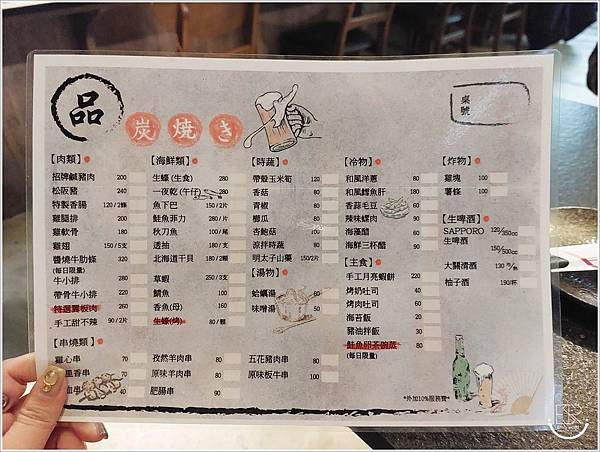 品
炭燒き
桌號
【肉類】
招牌鹹豬肉 200
松阪豬 240
特製香腸 120/2條
雞腿排 200
雞軟骨 180
雞翅 150/5支
醬燒牛肋條 320
(每日限量)
牛小排 280
帶骨牛小排 220
特選翼板肉 260
手工甜不辣 90/2片
【海鮮類】
生蠔(生食) 280
一夜乾(午仔) 280
魚下巴 150/2片
鮭魚菲力 280/片
秋刀魚 100/尾
透抽 180/支
北海道干貝 180/2顆
草蝦 250/3支
鯖魚 100
香魚(母) 160
生蠔(烤) 80/顆
【時蔬】
帶殼玉米筍 120
香菇 80
青椒 80
櫛瓜 80
杏鮑菇 100
原拌時蔬 80
明太子山藥 150/2片
【湯物】
蛤蠣湯 60
味噌湯 50
【冷物】
和風洋蔥 80
和風鱈魚肝 180
香蒜毛豆 50
辣味螺肉 90
海藻醋 60
海鮮三杯醋 80
【主食】
手工月亮蝦餅 220
烤奶吐司 40
烤肉吐司 50
海苔飯 50
豬油拌飯 50
鮭魚卵茶碗蒸 80
(每日限量)
【炸物】
雞塊 100
薯條 100
【生啤酒】
SAPPORO 120/350cc
生啤酒 150/500cc
大關清酒 130
柚子酒 190/杯
【串燒類】
雞心串 70
里香串 70
串 40
孜然羊肉串 80
原味羊肉串 80
肥腸串 90
五花豬肉串 80
原味板牛串 100
*外加10%服務費*